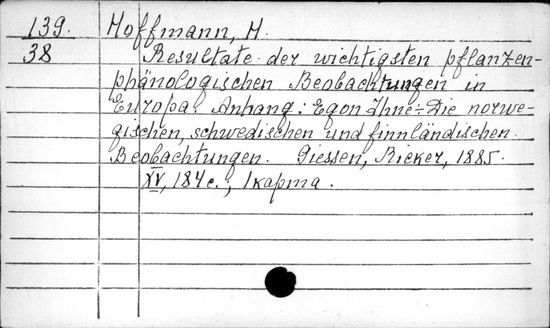 139. Hoffmann, H.
38 Resultate der wichtigsten pflanzen-
phänologischen Beobachtungen in
Europa. Anhang: Egon Ihne - Die norwe-
gischen, schwedischen und finnländischen
Beobachtungen. Giessen, Ricker, 1885.
XV, 184 с., 1 карта.